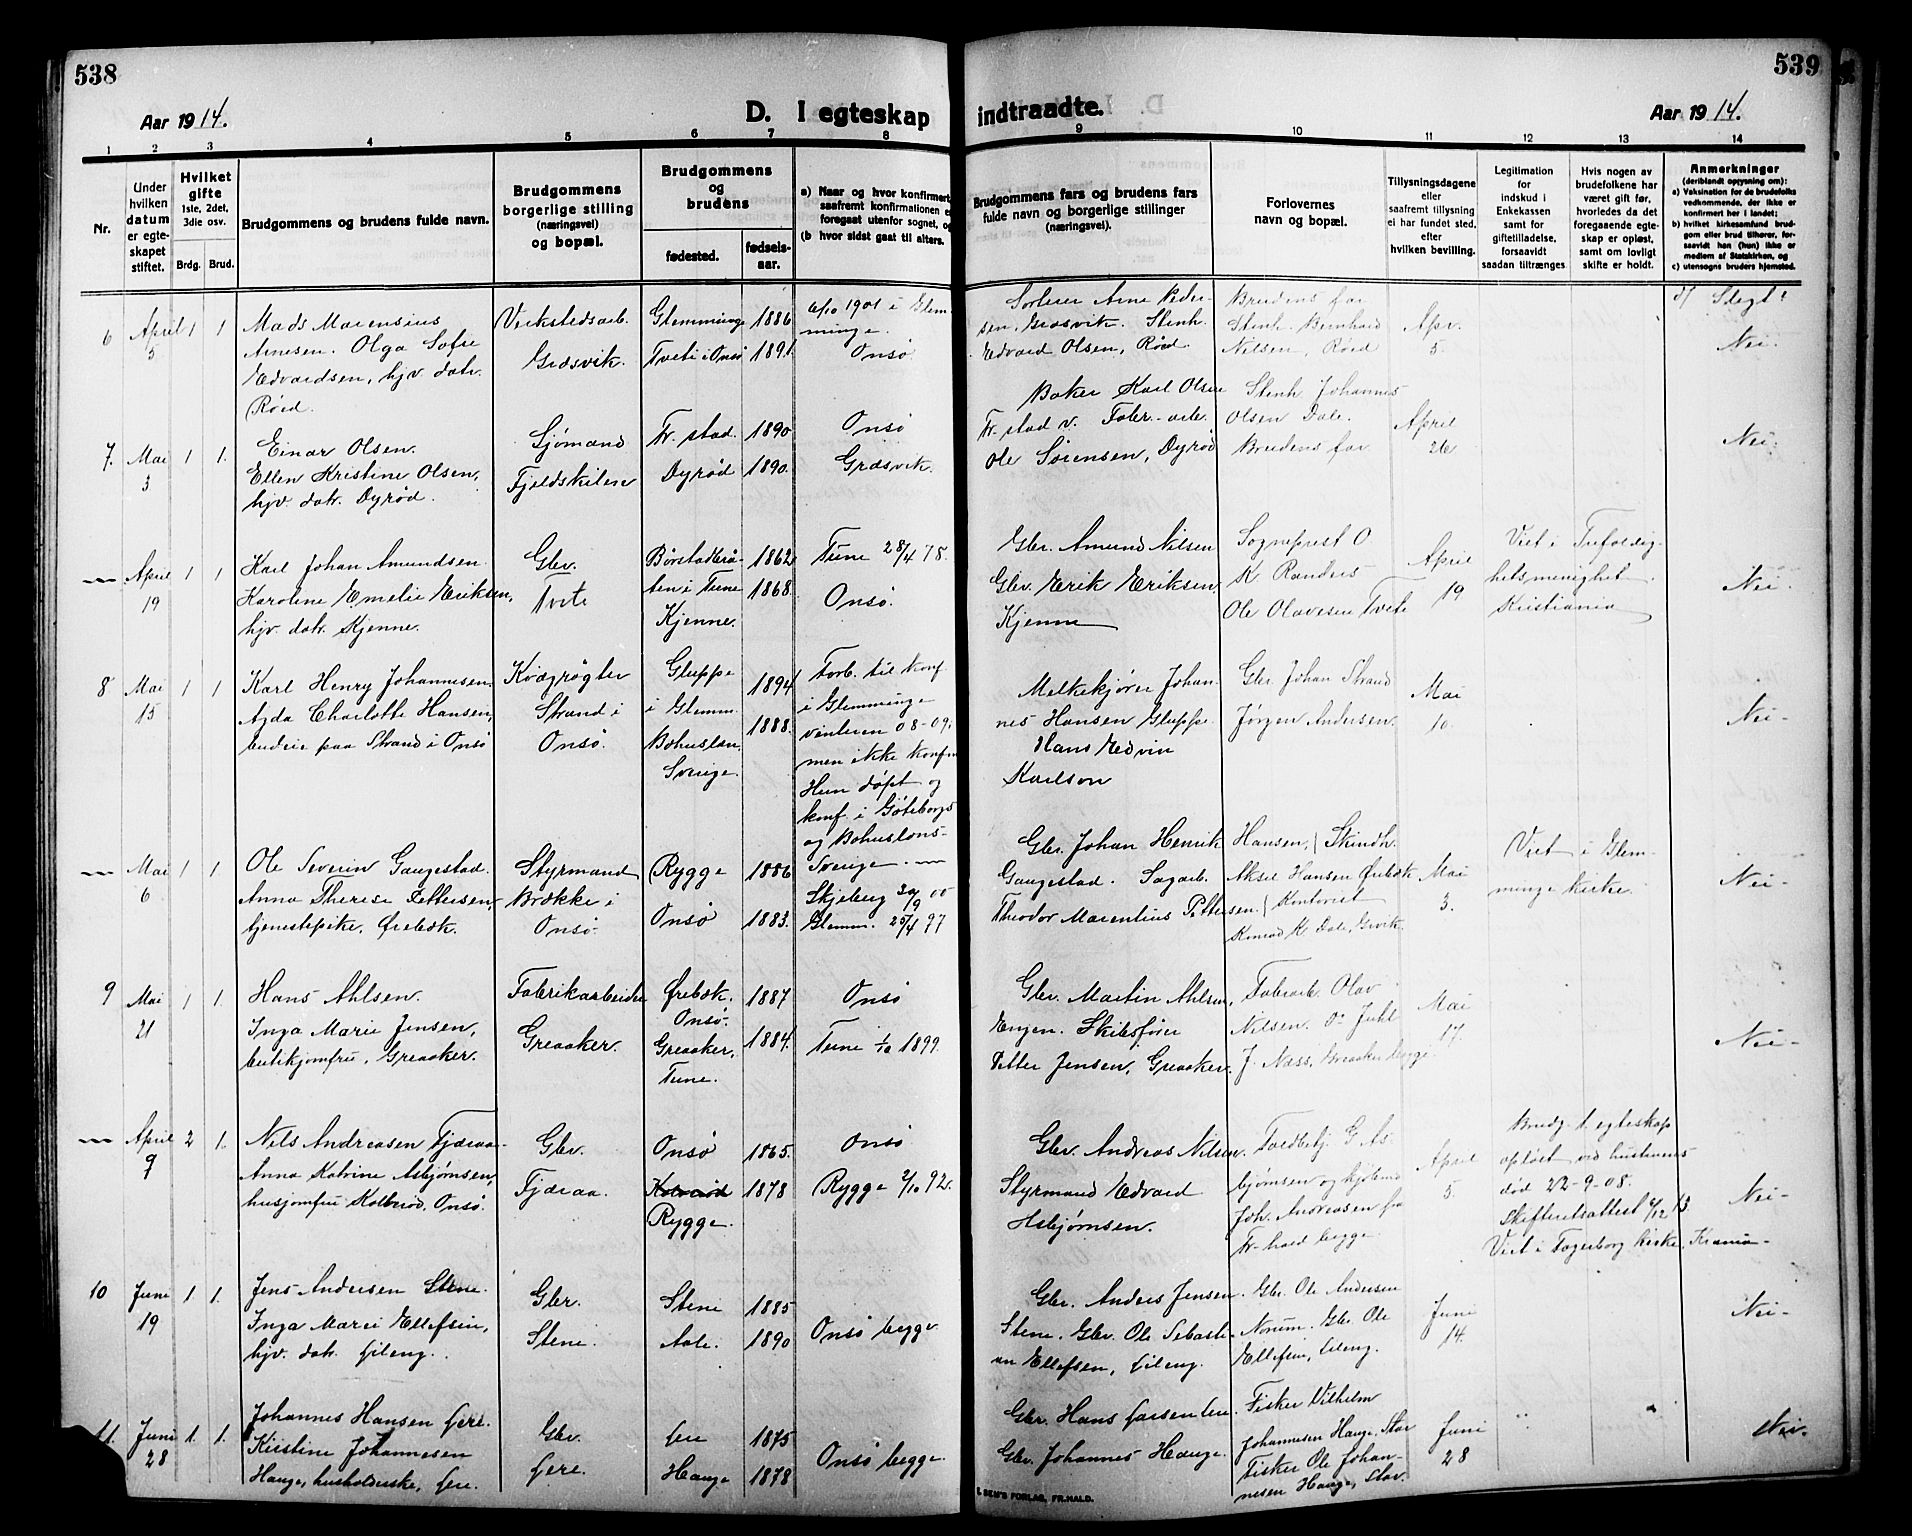 538
539
Aar 1914.
D. I egteskap indtraadte.
Aar 1914.
1 2 3 4 5 6 7 8 9 10 11 12 13 14
Nr.
Under hvilken datum er egteskapet stiftet.
Hvilket gifte 1ste, 2det, 3die osv.
Brdg. Brud.
Brudgommens og brudens fulde navn.
Brudgommens borgerlige stilling (næringsvei) og bopæl.
Brudgommens og brudens
fødested.
fødselsaar.
a) Naar og hvor konfirmert, saafremt konfirmationen er foregaat utenfor sognet, og
(b hvor sidst gaat til alters.
Brudgommens fars og brudens fars fulde navn og borgerlige stillinger (næringsvei).
Forlovernes navn og bopæl.
Tillysningsdagene eller saafremt tillysning ei har fundet sted, efter hvilken bevilling.
Legitimation for indskud i Enkekassen samt for giftetilladelse, forsaavidt saadan tiltrænges
Hvis nogen av brudefolkene har været gift før, hvorledes da det foregaaende egteskap er opløst, samt om lovligt skifte er holdt.
Anmerkninger (deriblandt oplysning om):
a) Vaksination for de brudefolks vedkommende, der ikke er konfirmert her i landet;
b) hvilket kirkesamfund brudgom eller brud tilhører, forsaavidt han (hun) ikke er medlem af Statskirken, og
c) utensogns bruders hjemsted.
6 April 5 1 1
Mads Marensius
Arnesen. Olga Sofie
Edvardsen, hjv. datr.
Røed.
Verkstedsarb.
Græsvik.
Glemminge 1886
Tvete i Onsø 1891.
6/10 1901 i Glemminge.
Onsø
Sorterer Arne Pedersen, Græsvik. Stenh.
Edvard Olsen, Røed.
Brudens far
Stenh. Bernhard
Nilsen, Røed
Apr.
5.
d/ Slegt?
Nei.
7. Mai 3 1 1.
Einar Olsen.
Ellen Kristine Olsen,
hjv. datr. Dyrød.
Sjømand
Fjeldskilen
Fr. stad. 1890
Dyrød 1890.
Onsø
Græsvik.
Baker Karl Olsen
Fr. stad v. Fabr.-arb.
Ole Sørensen, Dyrød
Stenh. Johannes
Olsen Dale.
Brudens far
April
26
Nei.
— April 19 1 1
Karl Johan Amundsen
Karoline Emelie Eriksen,
hjv. datr. Kjenne.
Gbr.
Tvete
i Tune 1862
Kjenne. 1868.
Tune 28/4 78.
Onsø.
Gbr. Amund Nilsen
Gbr. Erik Eriksen
Kjenne
Sogneprest O.
K. Randers
Ole Olavesen Tvete
April
19
Viet i Trefoldighetsmenighet
Kristiania
Nei.
8 Mai 15 1 1
Karl Henry Johannesen.
Agda Charlotte Hansen,
budeie paa Strand i Onsø
Kvægrøgter
Strand i
Onsø.
Gluppe
i Glemm. 1894
Bohuslän. 1888.
Sverige.
Forb. til konf.
i Glemminge
vinteren 08-09,
men ikke konf.
Hun døpt og
konf. i Göteborgs
og Bohusläns-
Sverige.
Melkekjører Johannes Hansen Gluppe.
Hans Edvin
Karlson
Gbr. Johan Strand
Jørgen Andersen.
Mai
10.
Nei.
— Mai 6 1 1.
Ole Severin Gaugestad.
Anna Therese Pettersen,
tjenestepike, Ørebæk.
Styrmand
Brække i
Onsø.
Rygge 1886
Onsø 1883.
Skjeberg 30/9 00
Glemm. 25/4 97
Gbr. Johan Henrik
Gaugestad. Sagarb.
Theodor Marentius Pettersen.
Hansen, Skindh.
Aksel Hansen Ørebæk
Kontorist
Konrad K. Dale, G.vik
Mai
3.
Viet i Glemminge kirke.
Nei.
9 Mai 21 1 1.
Hans Ahlsen.
Inga Marie Jensen,
butikjomfru, Greaaker.
Fabrikarbeider
Greaaker.
Ørebæk. 1887
Onsø.
Greaaker, 1884.
Tune.
Onsø
Tune 1/10 1899.
Gbr. Martin Ahlsen,
Engen. Skibsfører
Petter Jensen, Greaaker.
Fabrarb. Olav
Nilsen. Juhl
J. Næss, Greaaker begge.
Mai
17.
Nei.
— April 9 2 1.
Nils Andreasen Fjæraa
Anna Katrine Asbjørnsen,
husjomfru Kolberød, Onsø.
Gbr.
Fjæraa.
Onsø 1865.
Rygge. 1878
Onsø
Rygge 2/10 92.
Gbr. Andreas Nilsen.
Styrmand Edvard
Asbjørnsen.
Toldbetj. G. Asbjørnsen og kjøbmd
Joh. Andreasen fra
Fr. hald begge.
April
5.
Brudg. 1. egteskap
opløst ved hustruens
død 22-9-08.
Skifteretsattest 6/12 13.
Viet i Fagerborg kirke, Krania
Nei.
10 Juni 19 1 1.
Jens Andersen Stene.
Inga Marie Ellefsen,
hjv. datr. Lileng.
Gbr.
Stene.
Stene 1885
Aale. 1890
Onsø begge
Gbr. Anders Jensen
Stene. Gbr. Ole Sebastian Ellefsen, Lileng.
Gbr. Ole Andersen
Norum. Gbr. Ole
Ellefsen, Lileng.
Juni
14.
Nei.
11. Juni 28 1. 1.
Johannes Hansen Lere.
Kristine Johannesen
Hauge, husholderske, Lere.
Gbr.
Lere.
Lere 1875
Hauge 1878
Onsø begge.
Gbr. Hans Larsen Lere.
Gbr. Johannes Hauge.
Fisker Vilhelm
Johannesen Hauge,
Fisker Ole Johannesen Hauge,
Juni
28
Nei.
FORLAG, FR.HALD.